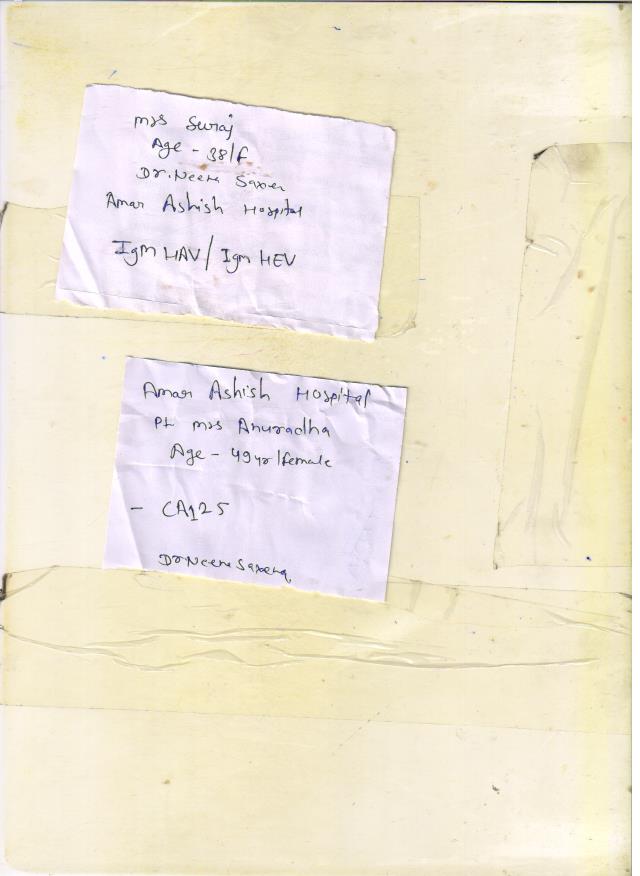 mrs Suraj
Age - 38/F
Dr. Neera Saxen
Amar Ashish Hospital
IgM HAV/ Igm HEV
Amar Ashish Hospital
Pt mrs Anuradha
Age - 49yr/female
- CA125
Dr Neera Saxena